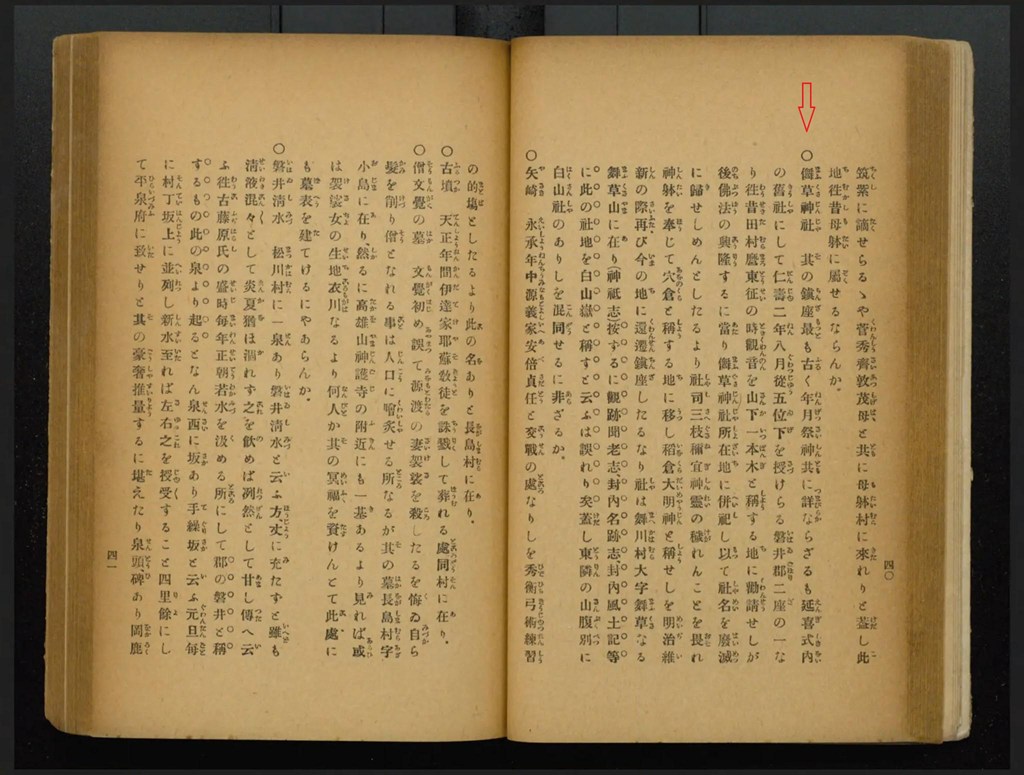 四〇
筑紫に謫せらるゝや菅秀才敦茂母と共に母躰村に來れりと蓋し此
地徃昔母躰に屬せるならんか。
〇儛草神社　其の鎭座最も古く年月祭神共に詳ならざるも延喜式内
の舊社にして仁壽二年八月從五位下を授けらる磐井郡二座の一な
り徃昔田村麿東征の時觀音を山下一本木と稱する地に勸請せしが
後佛法の興隆するに當り儛草神社所在地に併祀し以て社名を廢滅
に歸せしめんとしたるより社司三枝禰宜神靈の穢れんことを畏れ
神躰を奉じて穴倉と稱する地に移し稻倉大明神と稱せしを明治維
新の際再び今の地に還遷鎭座したるなり社は舞川村大字舞草なる
舞草山に在り神祗志按ずるに觀跡聞老志、封内名跡志、封内風土記等
に此の社地を白山嶽と稱すと云ふは誤れり矣蓋し東隣の山腹別に
白山社のありしを混同せるに非ざるか。
〇矢崎　永承年中源義家安倍貞任と交戰の處なりしを秀衡弓術練習
の的塲としたるより此の名ありと長島村に在り。
〇古墳　天正年間伊達家耶蘇敎徒を誅戮して葬れる處同村に在り。
〇僧文覺の墓　文覺初め誤て源渡の妻袈裟を殺したるを悔ゐ自ら
髮を削り僧となれる事は人口に噲炙せる所なるが其の墓長島村字
小島に在り、然るに高雄山神護寺の附近にも一基あるより見れば或
は袈裟女の生地衣川なるより何人か其の冥福を資けんとて此處に
も墓表を建てけるにやあらんか。
〇磐井清水　松川村に一泉あり磐井清水と云ふ方丈に充たずと雖も
淸液混々として炎夏猶ほ涸れず之を飲めば冽然として甘し傳へ云
ふ徃古藤原氏の盛時每年正朝若水を汲める所にして郡の磐井と稱
するもの此の泉より起るとなん泉西に坂あり手繰坂と云ふ元旦每
に村丁坂上に並列し新水至れば左右之を授受すること四里餘にし
て平泉府に致せりと其の豪奢推量するに堪えたり泉頭、碑あり岡鹿
四一